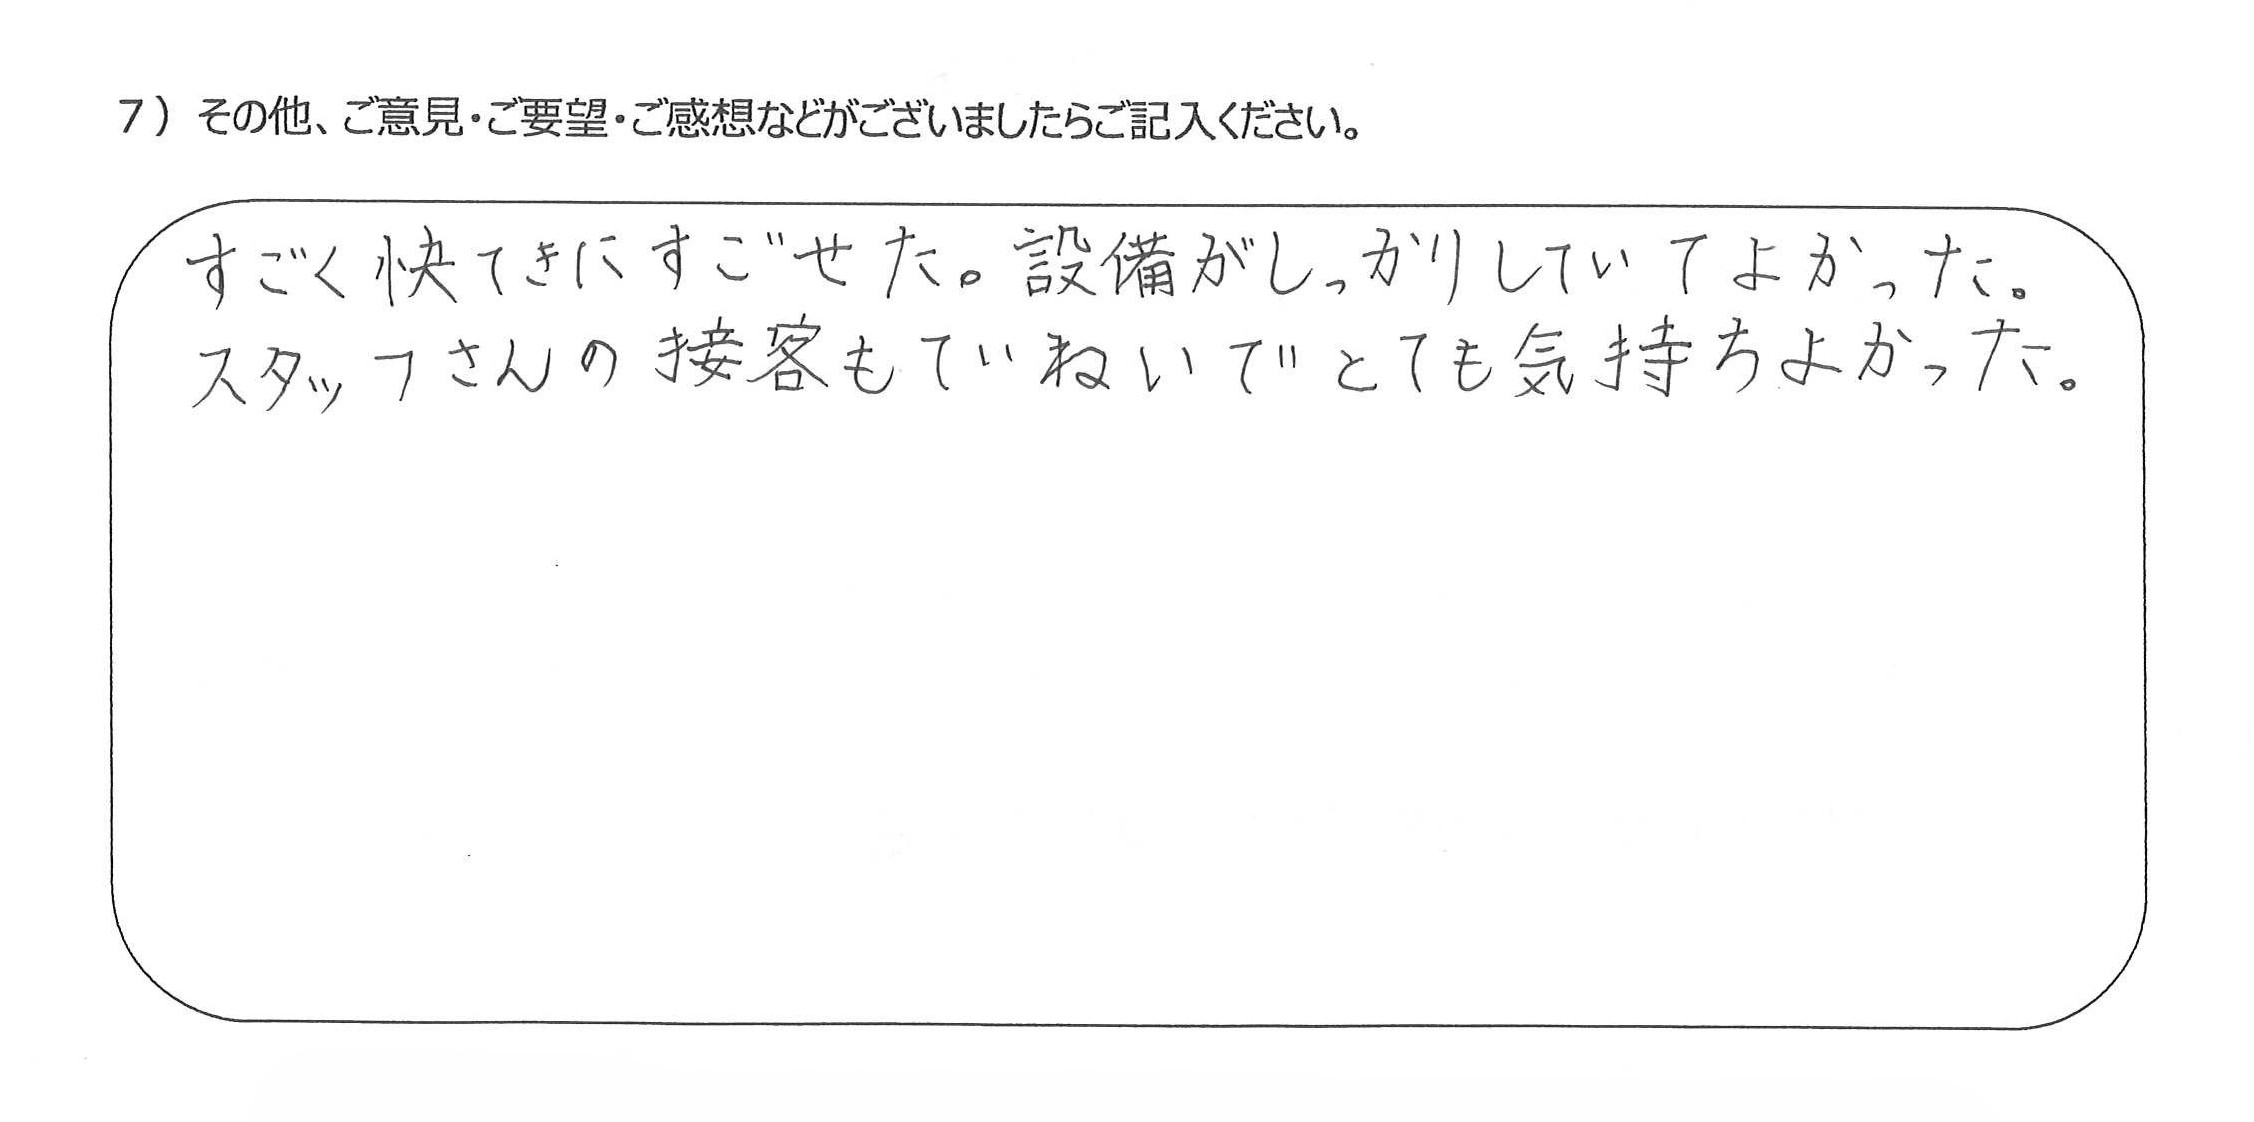 7) その他、ご意見・ご要望・ご感想などがございましたらご記入ください。
すごく快てきにすごせた。設備がしっかりしていてよかった。
スタッフさんの接客もていねいでとても気持ちよかった。